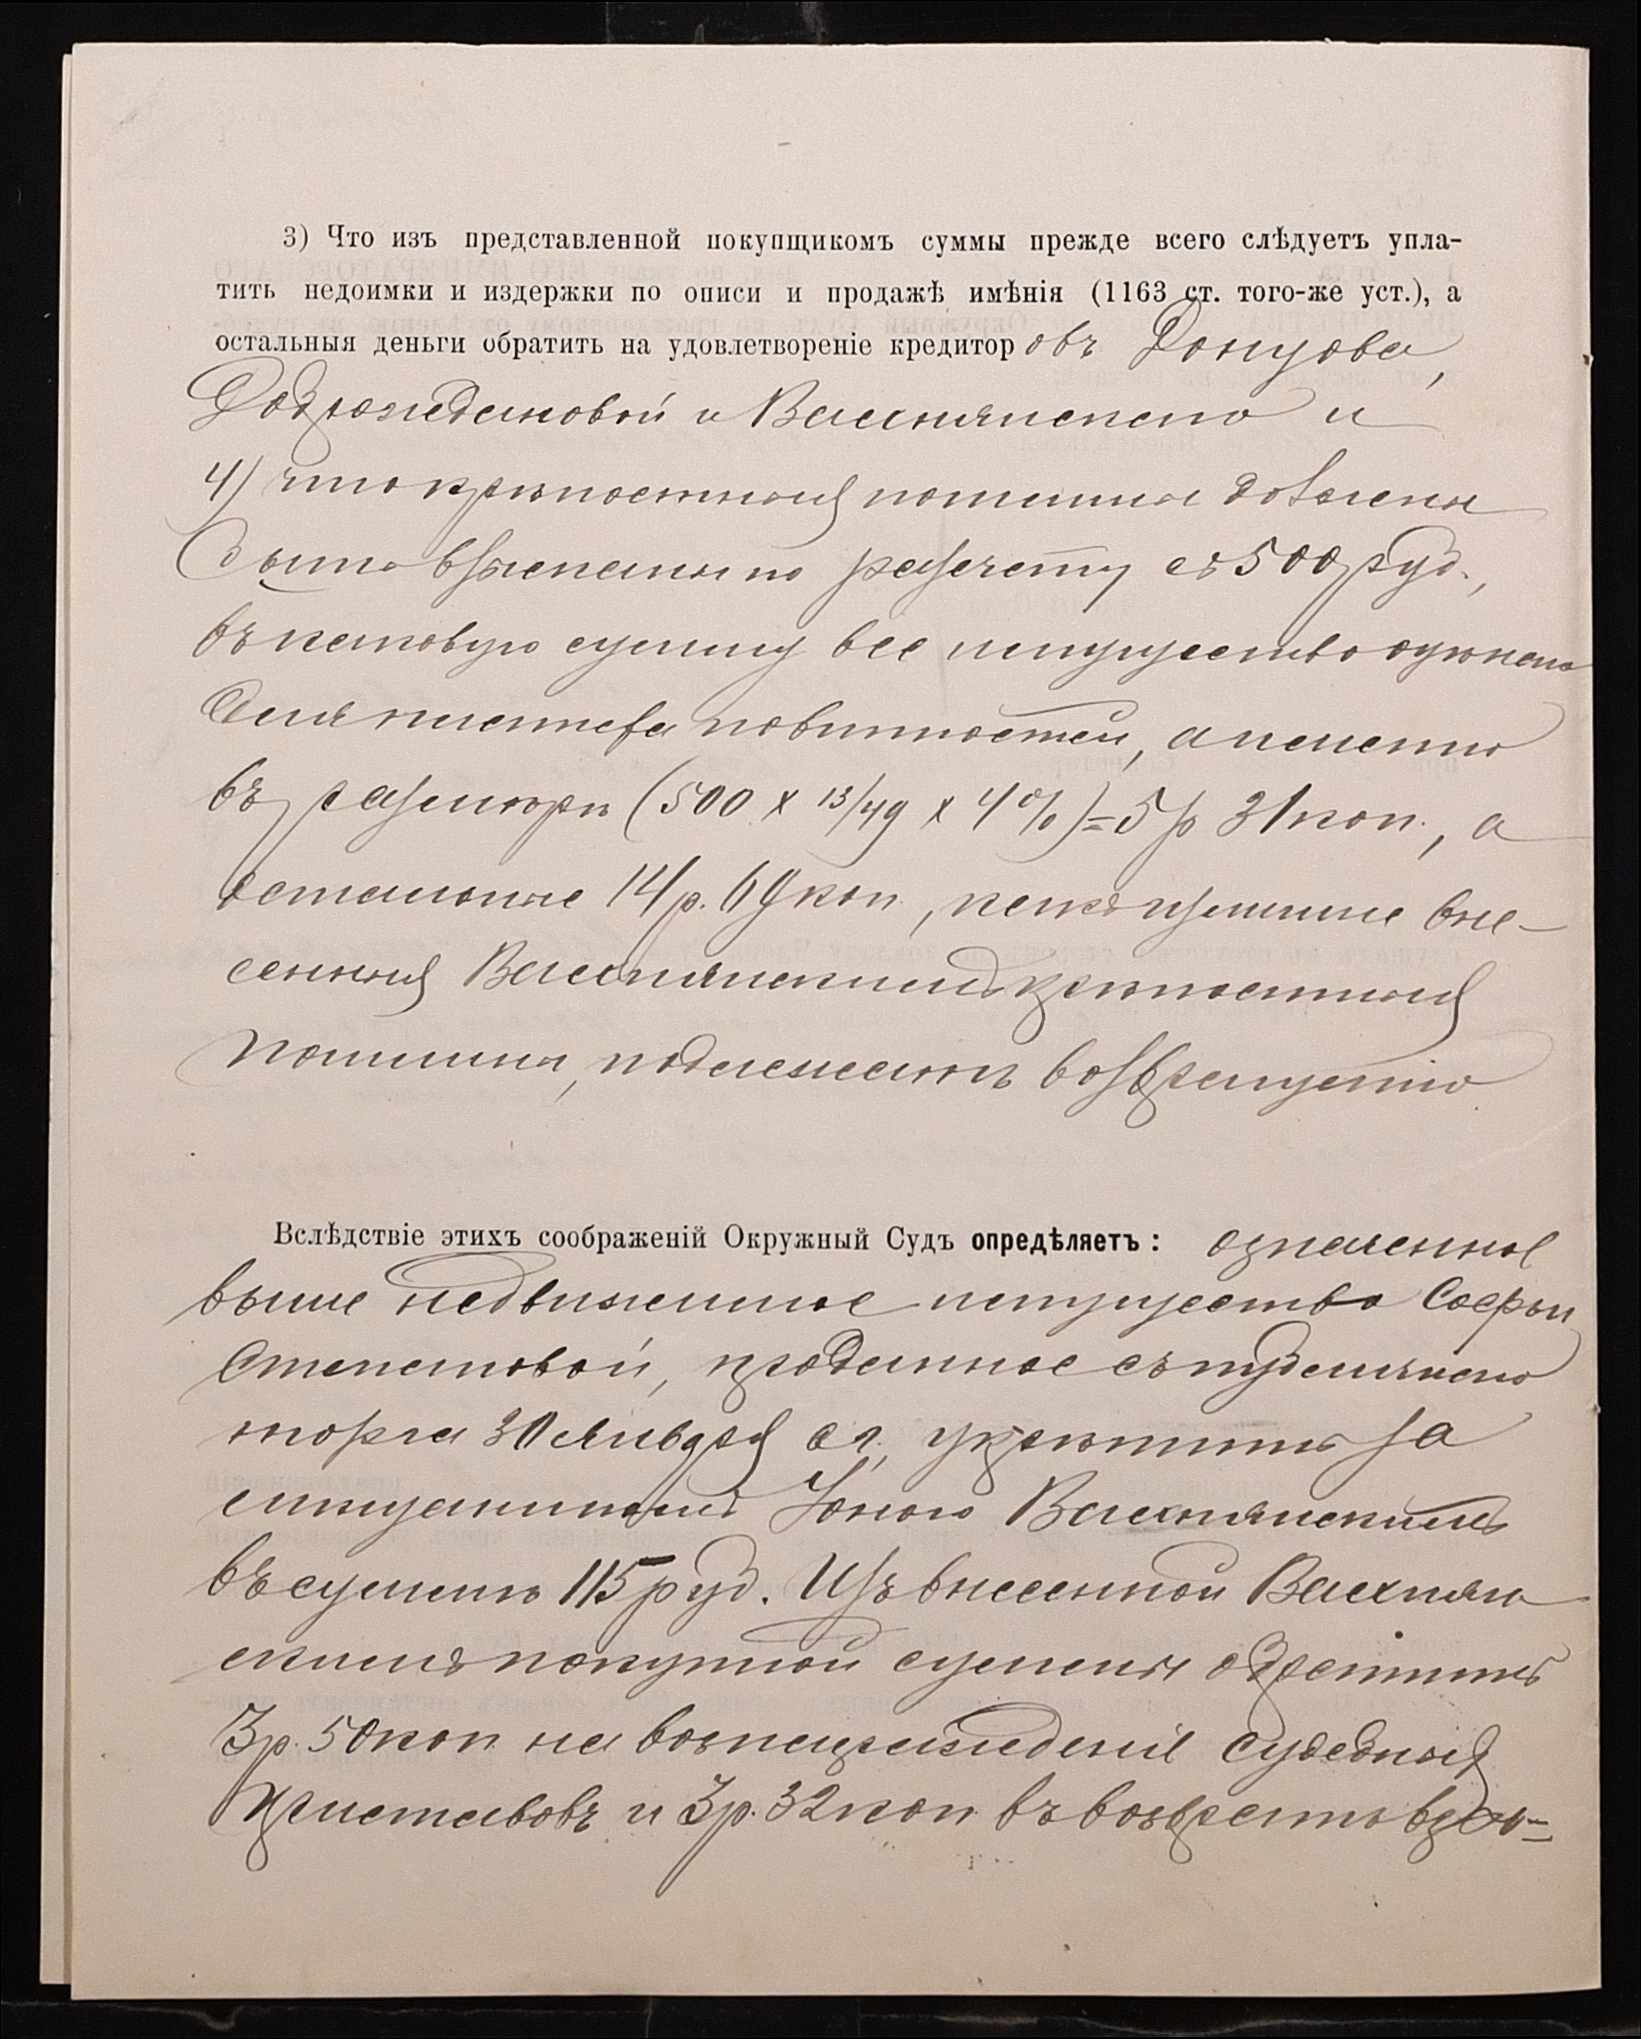 3) Что изъ представленной покупщикомъ суммы прежде всего слѣдуетъ упла-
тить недоимки и издержки по описи и продажѣ имѣнія (1163 ст. того-же уст.), а
остальныя деньги обратить на удовлетвореніе кредиторовъ Донцова,
и Вахнянскаго и
4) что крѣпостная пошлина должна
быть взыскана по разсчету съ 500 руб.,
въ каковую сумму все имущество оцѣнено
для платежа повинностей, а именно
въ размѣрѣ (500 x 13/49 x 4%) = 5 р 31 коп., а
остальные 14 р. 69 коп., какъ излишне вне-
сенныя Вахнянскимъ крѣпостныя
пошлины, подлежатъ возвращенію
Вслѣдствіе этихъ соображеній Окружный Судъ опредѣляетъ: означенное
выше недвижимое имущество Софьи
Степановой, проданное съ публичнаго
торга 30 Января с. г., укрѣпить за
мѣщаниномъ Юною Вахнянскимъ
въ суммѣ 115 руб. Изъ внесенной Вахнян
скимъ покупной суммы обратить
3 р. 50 коп на вознагражденіе судебныхъ
приставовъ и 3 р. 32 коп въ возвратъ